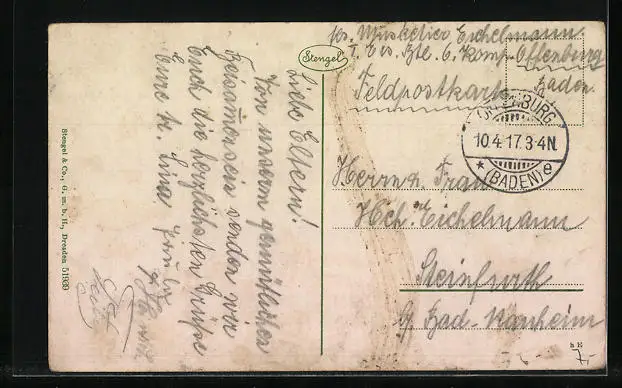 Abs. Musketier Eichelmann
I. Ers. Btl. 6. Komp. Offenburg
Baden
Stengel
Feldpostkarte
OFFENBURG
10.4.17.3-4N.
* (BADEN) e
Herrn u. Frau
Hch. Eichelmann
Steinfurth
b/ Bad-Nauheim
Liebe Eltern!
Von unserm gemütlichen
Beisammensein senden wir
Euch die herzlichsten Grüße
Eure Lina
Stengel & Co., G. m. b. H., Dresden 51939
h E
7.-